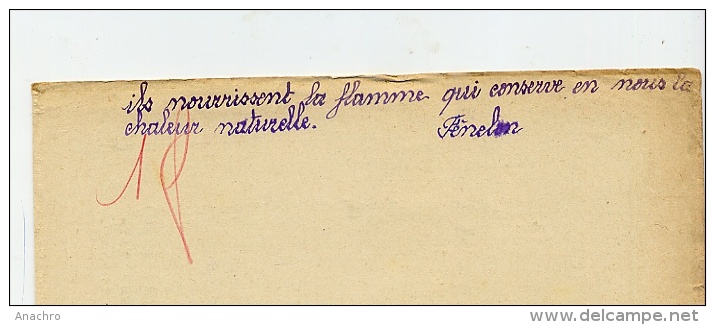 ils nourrissent la flamme qui conserve en nous la
chaleur naturelle. Fénelon
18
Anachro
delcampe.net